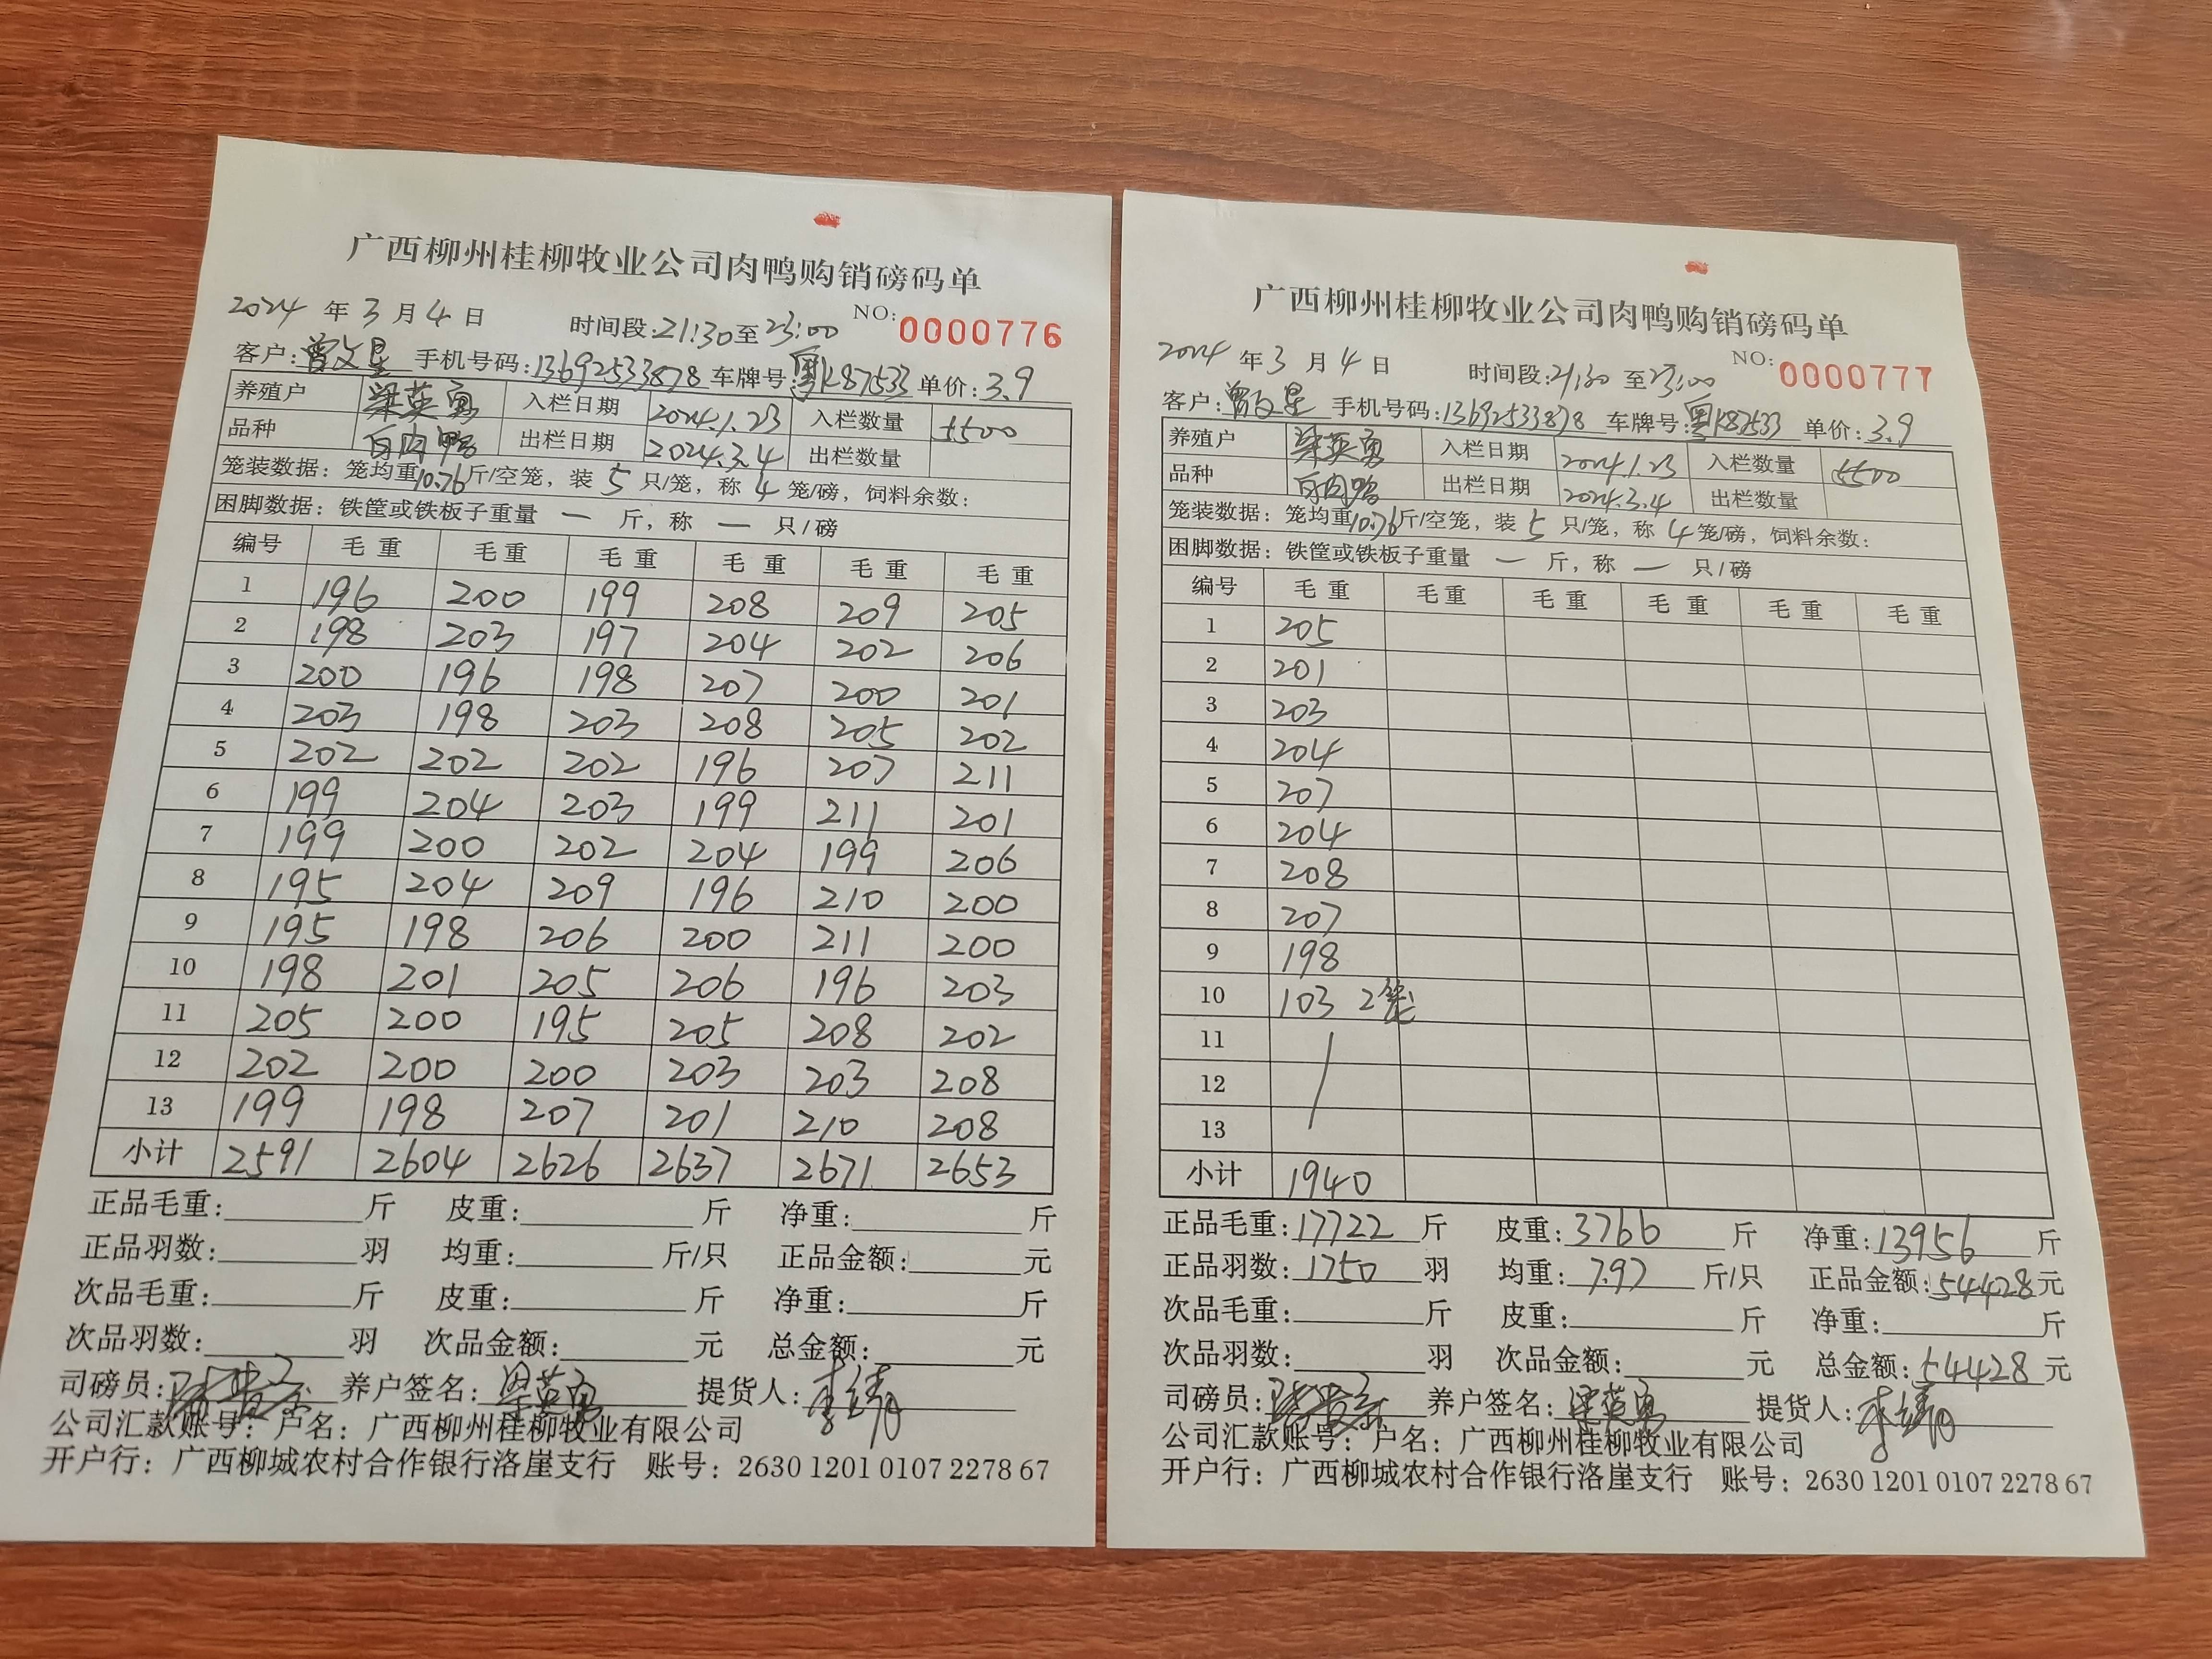 广西柳州桂柳牧业公司肉鸭购销磅码单
2024 年 3 月 4 日 时间段:21:30至23:00 NO: 0000776
客户:曾文星 手机号码:13692533878 车牌号:粤K87533 单价:3.9
养殖户 梁英勇 入栏日期 2024.1.23 入栏数量 5500
品种 白肉鸭 出栏日期 2024.3.4 出栏数量
笼装数据: 笼均重10.76斤/空笼, 装 5 只/笼, 称 4 笼/磅, 饲料余数:
困脚数据: 铁筐或铁板子重量 一 斤, 称 一 只/磅
编号 毛重 毛重 毛重 毛重 毛重 毛重
1 196 200 199 208 209 205
2 198 203 197 204 202 206
3 200 196 198 207 200 201
4 203 198 203 208 205 202
5 202 202 202 196 207 211
6 199 204 203 199 211 201
7 199 200 202 204 199 206
8 195 204 209 196 210 200
9 195 198 206 200 211 200
10 198 201 205 206 196 203
11 205 200 195 205 208 202
12 202 200 200 203 203 208
13 199 198 207 201 210 208
小计 2591 2604 2626 2637 2671 2653
正品毛重: 斤 皮重: 斤 净重: 斤
正品羽数: 羽 均重: 斤/只 正品金额: 元
次品毛重: 斤 皮重: 斤 净重: 斤
次品羽数: 羽 次品金额: 元 总金额: 元
司磅员: 养户签名:梁英勇 提货人:
公司汇款账号: 户名: 广西柳州桂柳牧业有限公司
开户行: 广西柳城农村合作银行洛崖支行 账号: 2630 1201 0107 2278 67
广西柳州桂柳牧业公司肉鸭购销磅码单
2024 年 3 月 4 日 时间段:21:30 至23:00 NO: 0000777
客户:曾文星 手机号码:13692533878 车牌号:粤K87533 单价:3.9
养殖户 梁英勇 入栏日期 2024.1.23 入栏数量 5500
品种 白肉鸭 出栏日期 2024.3.4 出栏数量
笼装数据: 笼均重10.76斤/空笼, 装 5 只/笼, 称 4 笼/磅, 饲料余数:
困脚数据: 铁筐或铁板子重量 一 斤, 称 一 只/磅
编号 毛重 毛重 毛重 毛重 毛重 毛重
1 205
2 201
3 203
4 204
5 207
6 204
7 208
8 207
9 198
10 103 2笼
11
12
13
小计 1940
正品毛重:17722 斤 皮重:3766 斤 净重:13956 斤
正品羽数:1750 羽 均重:7.97 斤/只 正品金额:54428元
次品毛重: 斤 皮重: 斤 净重: 斤
次品羽数: 羽 次品金额: 元 总金额:54428 元
司磅员: 养户签名:梁英勇 提货人:
公司汇款账号: 户名: 广西柳州桂柳牧业有限公司
开户行: 广西柳城农村合作银行洛崖支行 账号: 2630 1201 0107 2278 67